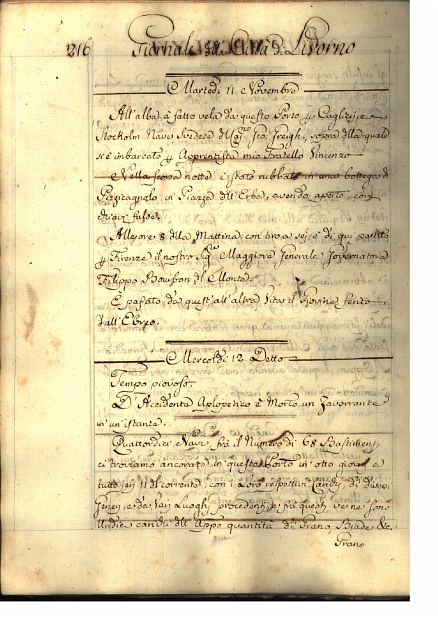 216 Giornale della Città di Livorno
Martedì 11 Novembre
All'alba à fatto vela da questo Porto p Caglieri, e
Stockolm Nave Svedese di Cap.no Gio: Freigh, sopra della quale
si è imbarcato p Apprentista mio Fratello Vincenzo
Nella scorsa notte è stato rubbato in una bottega di
Pizzicagnolo in Piazza dell'Erbe, avendo aperto, con
Alle ore 8 della Mattina con tiro a sei è di qui partito
p Firenze il nostro Sig.re Maggiore Generale Governatore
Filippo Bourbon del Monte.
E pasato da quest'all'altra Vita il Giovine ferito
dall'Ebreo.
Mercoldì 12 Detto
Tempo piovoso.
D'Accidente Apopletico è Morto un Zavorrante
in un istante.
Quattordici Navi, frà il Numero di 68 Bastimenti,
ci troviamo ancorate in questo Porto in otto giorni a
tutto jeri 11 del corrente, con i Loro respettivi Carichi, di diversi
Generi, e da varj Luoghi procedenti, e frà questi ve ne sono
Undici cariche di quantità di Grano, Biade, &c.
Grano